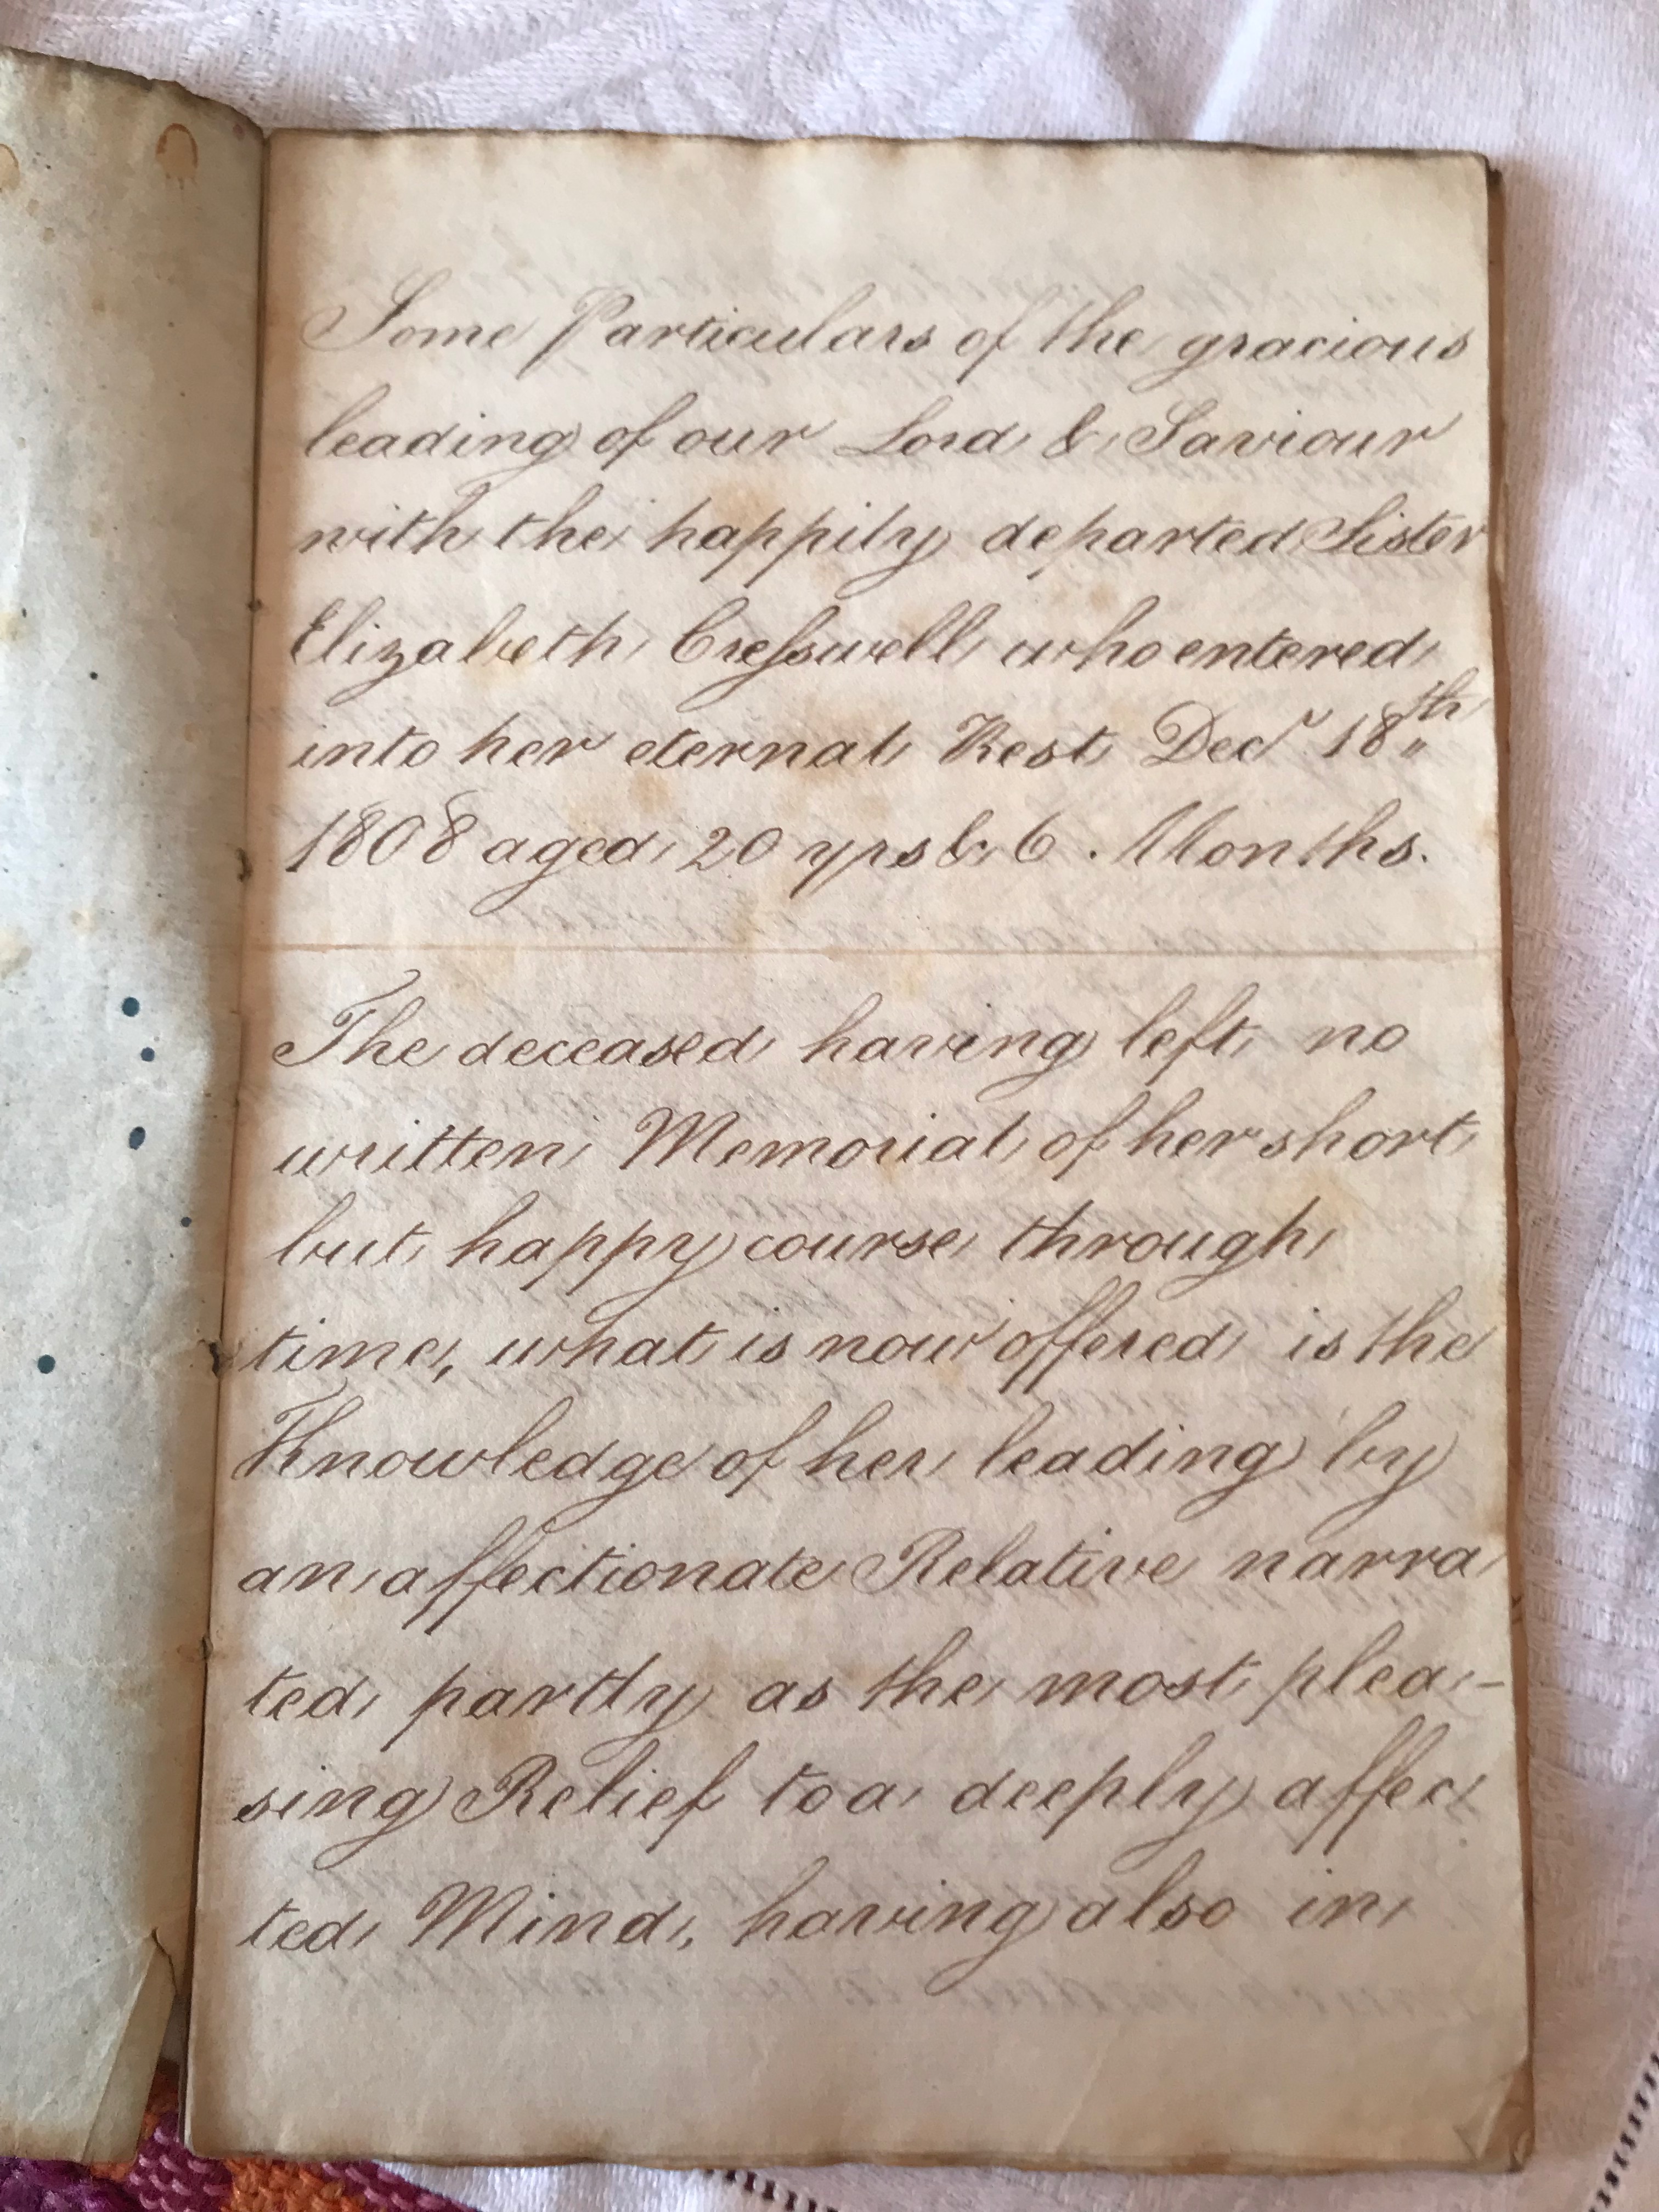 Some Particulars of the gracious
leading of our Lord & Saviour
with the happily departed Sister
Elizabeth Creſswell who entered
into her eternal Rest Decr 18th
1808 aged 20 yrs & 6. Months.
The deceased having left no
written Memorial of her short
but happy course through
time, what is now offered is the
Knowledge of her leading by
an affectionate Relative narra
ted partly as the most plea-
sing Relief to a deeply affec
ted Mind, having also in